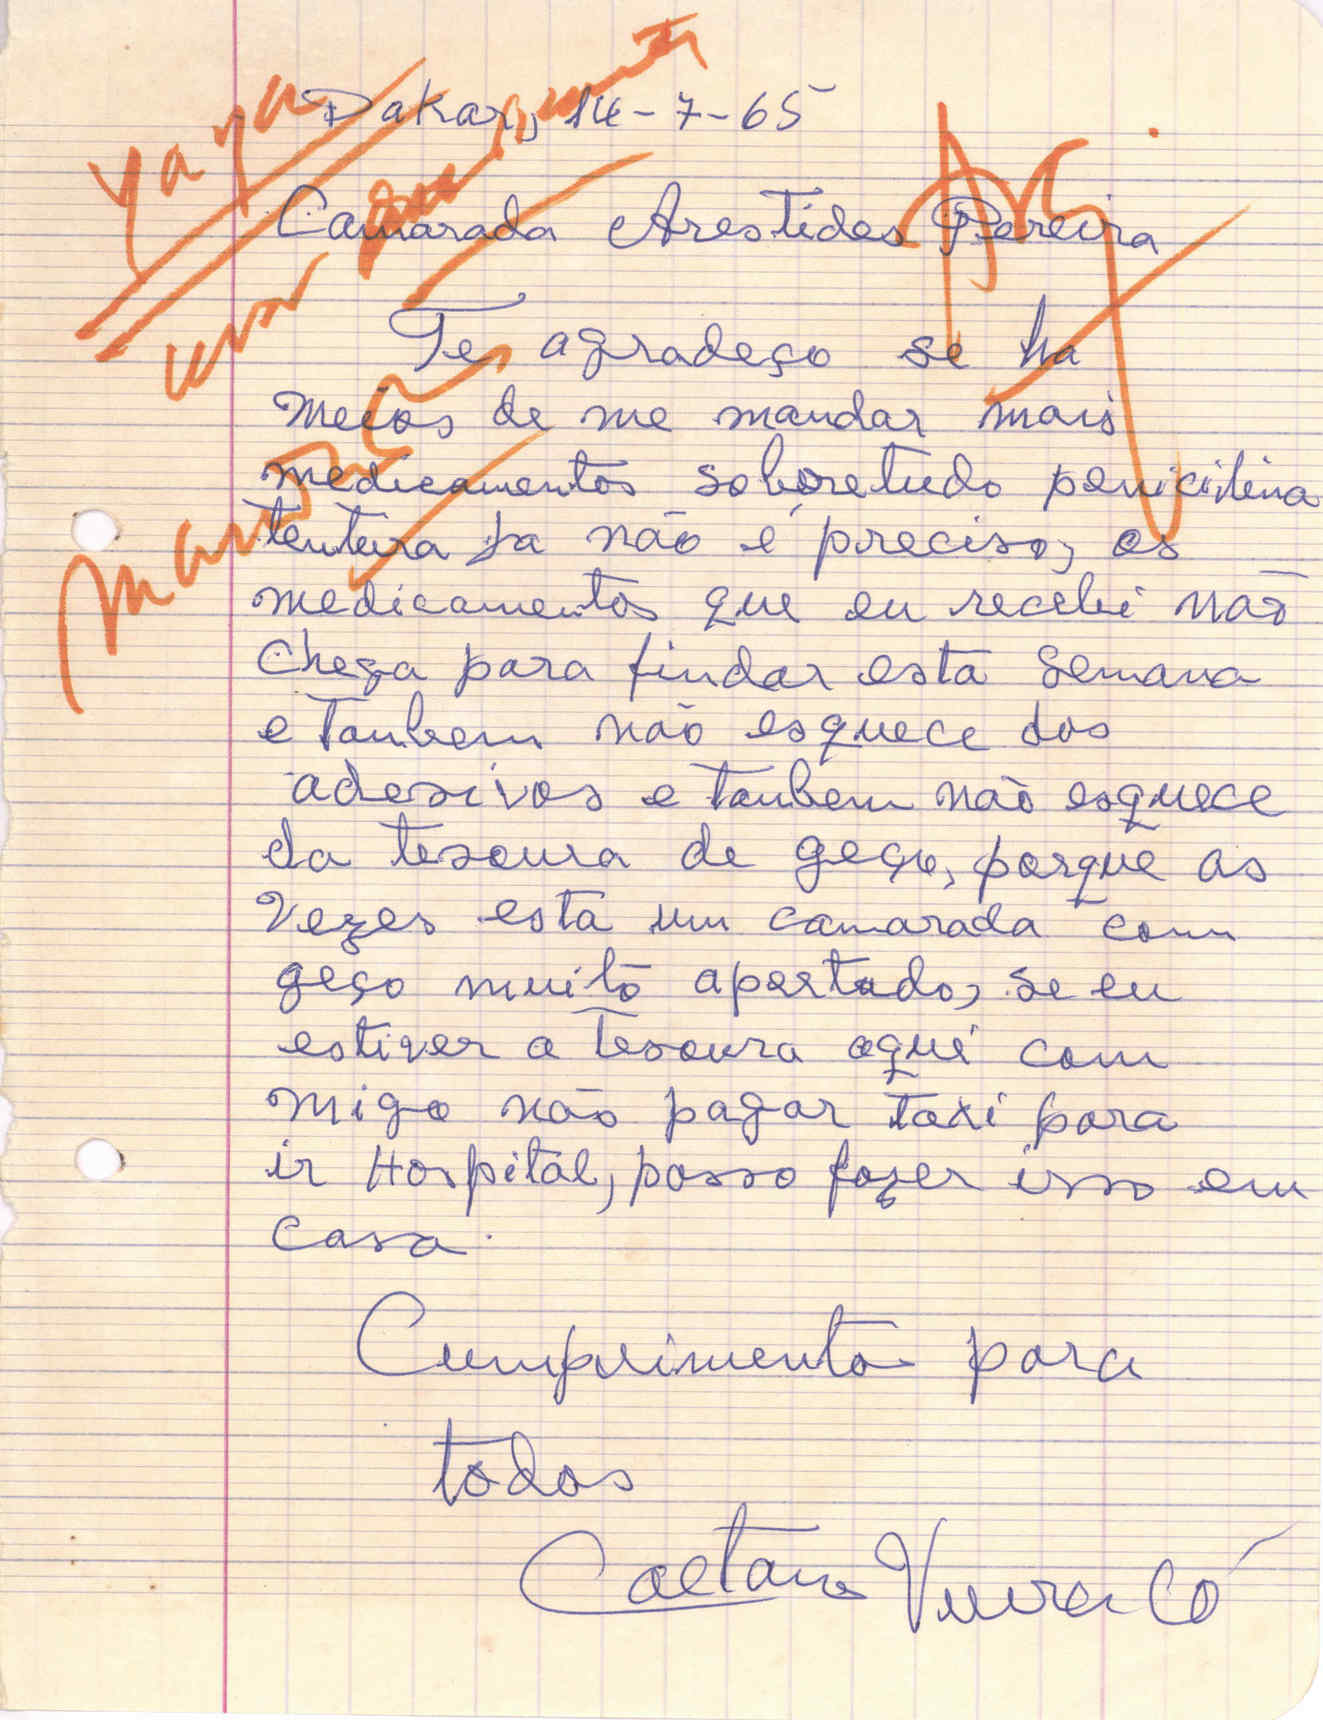 Yaya
Dakar, 14-7-65
Camarada Arestides Pereira
Te agradeço se ha
meios de me mandar mais
medicamentos soboretudo penicilina
tentura ja não é preciso, os
medicamentos que eu recebi não
chega para findar esta semana
e tanbem não esquece dos
adesivos e tanbem não esquece
da tesoura de geço, porque as
vezes está um camarada com
geço muito apertado, se eu
estiver a tesoura aqui com
migo não pagar taxi para
ir Hospital, posso fazer isso em
casa.
Cumprimento para
todos
Caetano Vieira Có